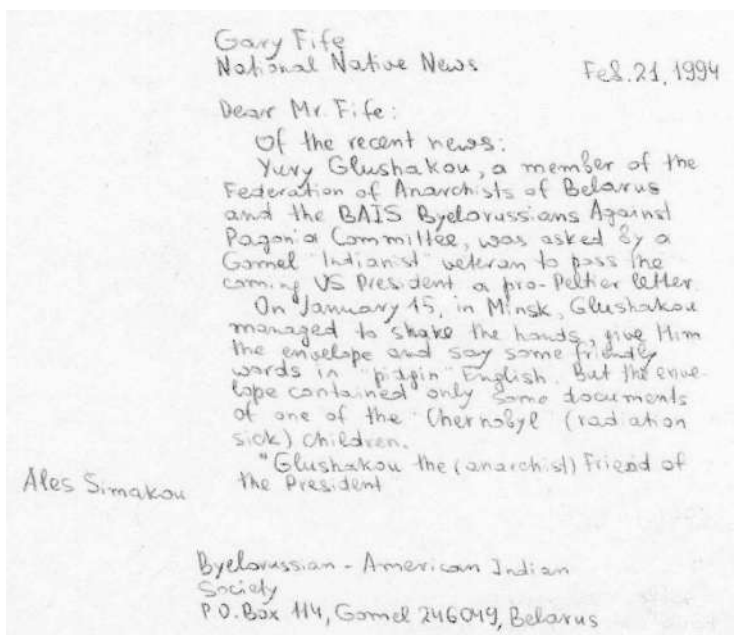 Gary Fife
National Native News
Feb. 21, 1994
Dear Mr. Fife:
Of the recent news:
Yury Glushakou, a member of the
Federation of Anarchists of Belarus
and the BAIS Byelorussians Against
Pagonia Committee, was asked by a
Gomel "Indianist" veteran to pass the
coming US President a pro-Peltier letter.
On January 15, in Minsk, Glushakou
managed to shake the hands, give Him
the envelope and say some friendly
words in "pidgin" English. But the enve-
lope contained only some documents
of one of the Chernobyl (radiation
sick) children.
"Glushakou the (anarchist) Friend of
the President"
Ales Simakou
Byelorussian - American Indian
Society
P.O. Box 114, Gomel 246049, Belarus